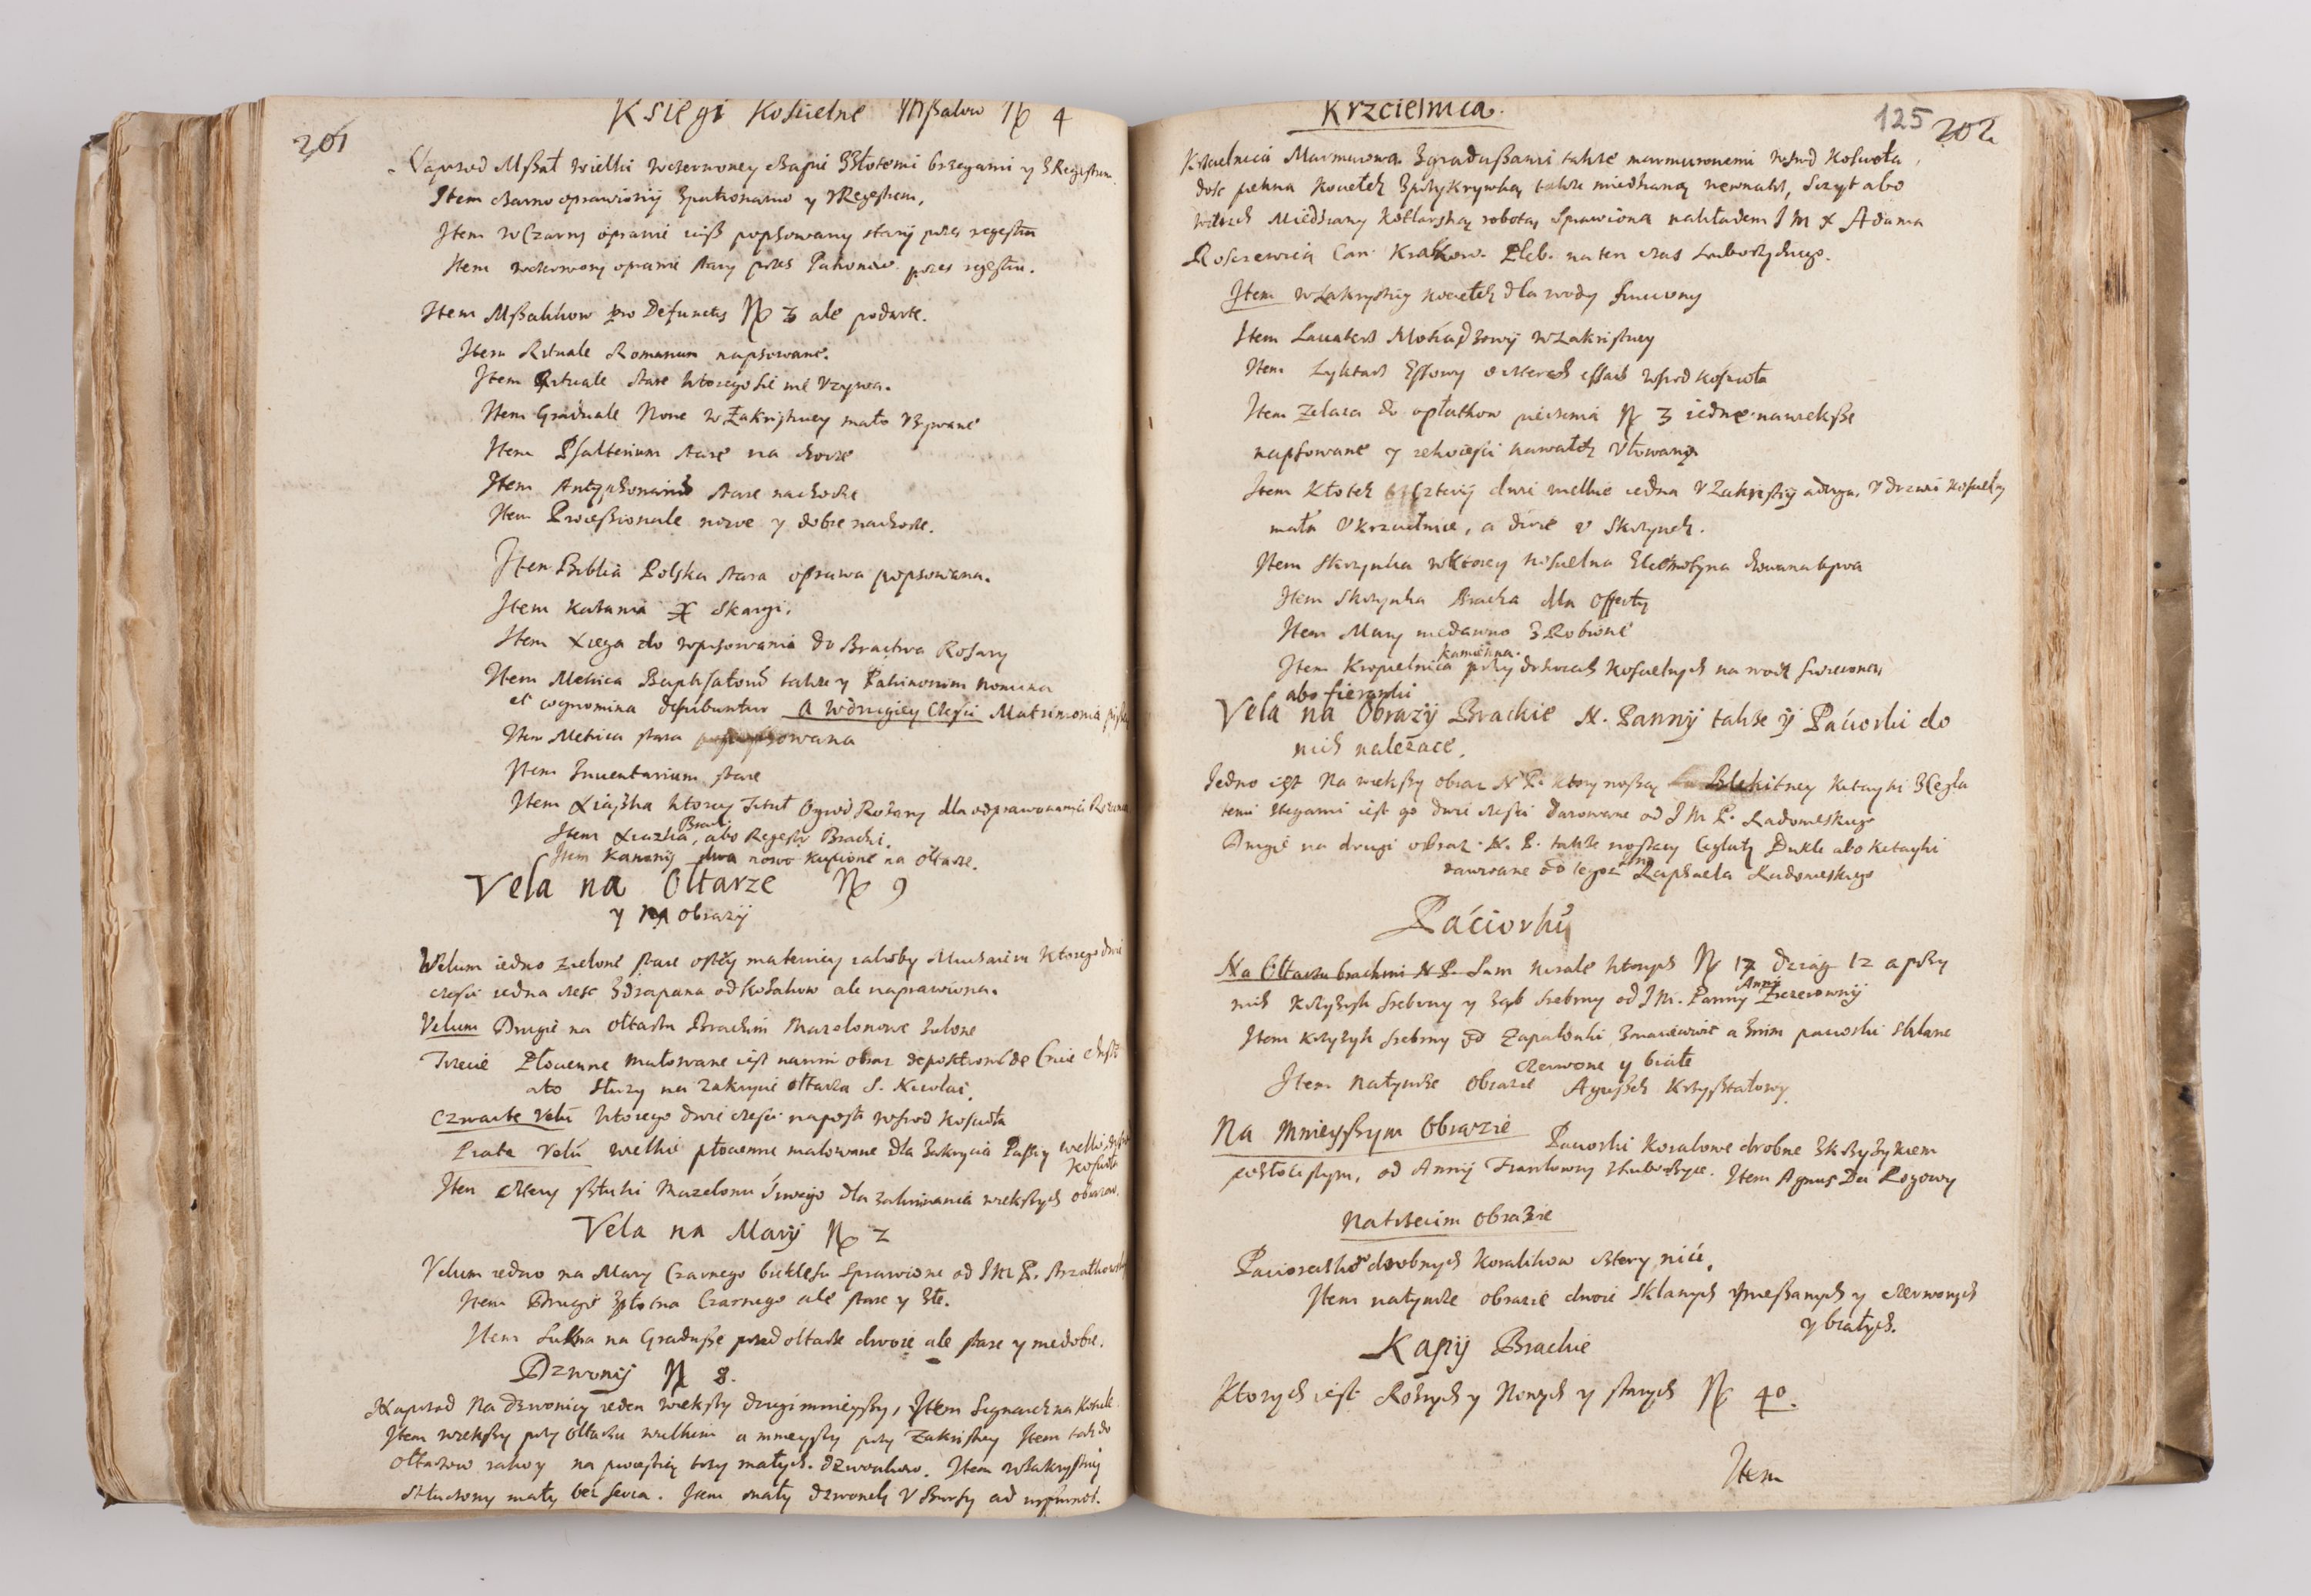 201
Księgi Kościelne Mszałow No 4
Naprzod Mszał wielki wczerwoney Złotemi brzegami y z Regestrem.
Item czarno oprawiony z patronami y z Regestrem.
Item w Czarnÿ oprawie iusz popsowany starÿ przez regestru
Item wczerwony oprawie stary przez Patronow przez regestru.
Item Mszalikow pro Defunctis No 3 ale podarte.
Item Rituale Romanum napsowane.
Item Rituale stare ktorego sie nie vzywa.
Item Graduale Nowe w Zakristyey mało vzywane
Item Psalterium stare na chorze
Item Antyphonarius stare na chorze
Item Processionale nowe y dobre na chorze.
Item Biblia Polska stara oprawa popsowana.
Item Kazania X Skargi.
Item Xięga do wpisowania do Bractwa Rosary
Item Metrica Baptisatorum także y Patrinorum nomina
et cognomina describuntur a w drugiey Części Matrimonia
Item Metrica stara
Item Inventarium stare
Item Xiąszka ktorey Tytuł Ogrod Rożany dla odprawowania
Item Xiazka Brack: abo Regestr Bracki.
Item Kanony dwa nowo kupione na ołtarze.
Vela na Ołtarze No 9
y na obrazÿ
Velum iedno zielone stare materiey ktorego dwie
części iedna część zdrapana od Kozakow ale naprawiona.
Velum Drugie na ołtarzu Brackim Mazelonowe zielone
Trzecie Płocienne malowane iest na nim obraz
ato słuzy na zakrycie ołtarza S. Nicolai.
Czwarte Velū ktorego dwie części na post wsrod Kościoła
Piąte Velū wielkie płocienne malowane dla zakrycia Passiy
Kościoła
Item cztery sztuki Mazelonu dla zakriwania wiekszych obrazow.
Vela na Mary No 2
Velum iedno na Mary Czarnego sprawione od IM P.
Item Drugie z płotna Czarnego ale stare y złe.
Item Sukna na Gradusze przed ołtarze dwoie ale stare y niedobre.
Dzwonÿ No 8.
Naprzod Na dzwonicy ieden wiekszy drugi mnieyszy, Item Signarek na Kościele
Item wiekszy przy ołtarzu wielkim a mnieyszy przy Zakristiey Item także do
ołtarzow na processią trzy małych dzwonkow. Item w Zakrystiey
stłuczony mały bez serca. Item mały dzwonek v Bursy
125 202
Krzcielnica.
Krzcielnica Marmurowa z gradusami także marmuronemi wsrod Kościoła
dosc pełna Kociełek z przykrywką także miedzianą newnatrz, Szczyt abo
Miedziany kotlarską robotą sprawiona nakładem IM X Adama
Roszewicza Can: Krakow. Pleb. na ten czas Luborzyckiego.
Item w Zakrystiey kociełek dla wody swiecony
Item Lavaterz Mosiądzowy w Zakristiey
Item Lyktarz wsrod Kościoła
Item Zelaza do opłatkow pieczenia No 3 iedne nawieksze
napsowane y rekoiesci kawałek vłowany
Item Kłotek Czterÿ dwie wielkie iedna v Zakristiÿ a druga v drzwi Kościelny
mała v krzcielnice, a dwie v Skrzynek.
Item Skrzynka w ktorey Kościelna Elemosyna chowana bywa
Item Skrzynka Bracka dla Offerty
Item Mary niedawno zrobione
Item Kropielnica kamienna przy drzwiach Kościelnych na wodę swieconą
Vela abo fieranki na Obrazÿ Brackie N. Pannÿ także ÿ Paciorki do
nich należące.
Jedno iest Na wiekszy obraz N P. ktory noszą Blekitney Kitayki z Cegla
temi stęgami iest go dwie części darowane od IM P. Radomskiego
Drugie na drugi obraz N. P. także noszacy Ceglatey Dukle abo Kitayki
darowane od tegoz IMP Raphaela Radomskiego
Paciorkÿ
Na Ołtarzu brackim N P. Sam Korale ktorych No 17 drząg 12 a przy
nich Krzyżyk srebrny y ząb srebrny od IM. Panny Anny
Item Krzyżyk srebrny od a z nim paciorki sklane
czerwone y białe
Item na tymże obrazie Agnuszek Krzysztalowy.
Na Mnieyszym Obrazie Paciorki koralowe drobne z Krzyżykiem
pozłocistym, od Annÿ z Luborzyce. Item Agnus Dei Rogowy
Na trzecim Obrazie
Paciorekkow drobnych Koralikow cztery nici.
Item na tymże obrazie dwoie sklanych zmieszanych y czerwonych
y białych.
Kapÿ Brackie
Ktorych iest Rożnych y Nowych y starych No 40.
Item